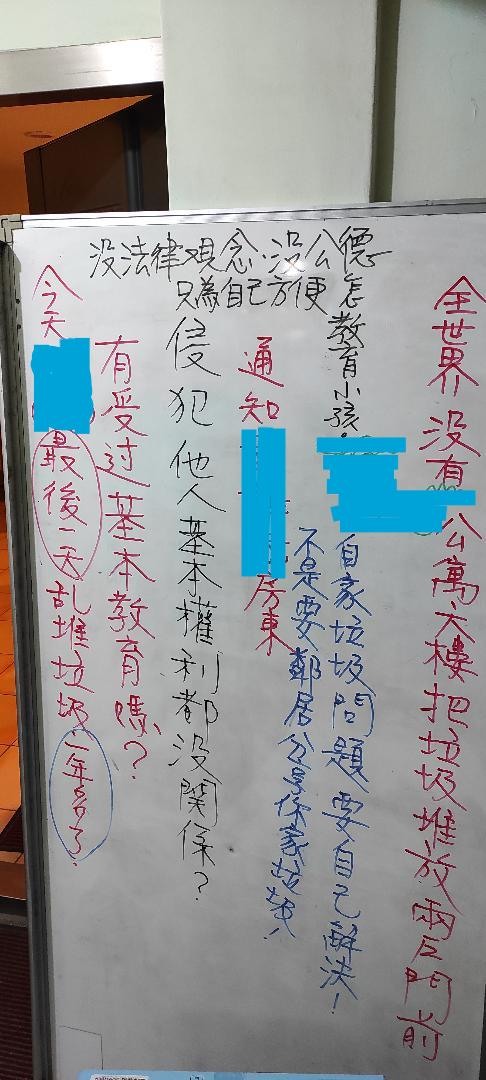 沒法律观念·沒公德
只為自己方便
全世界沒有公寓大樓把垃圾堆放兩戶門前
怎教育小孩
自家垃圾問題要自己解決！
不是要鄰居分享你家垃圾！
通知
房東
侵犯他人基本權利都沒関係？
有受过基本教育嗎？
今天
最後一天乱堆垃圾
一年多了